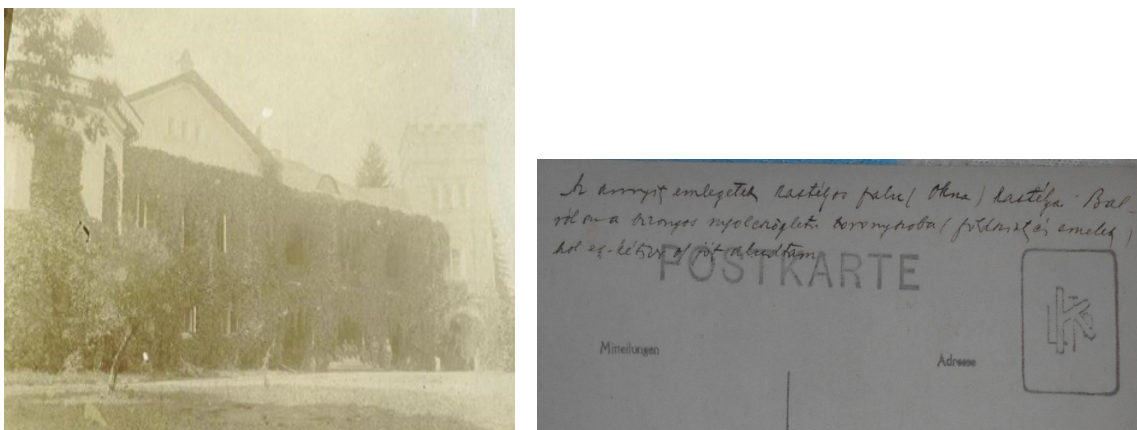 Az annyit emlegetett kastélyos falu (Okna) kastélya. Bal-
ról van a bizonyos nyolcszögletű toronyszoba (földszint és emelet)
hol egy-kétszer jót aludtam
POSTKARTE
Mitteilungen
Adresse